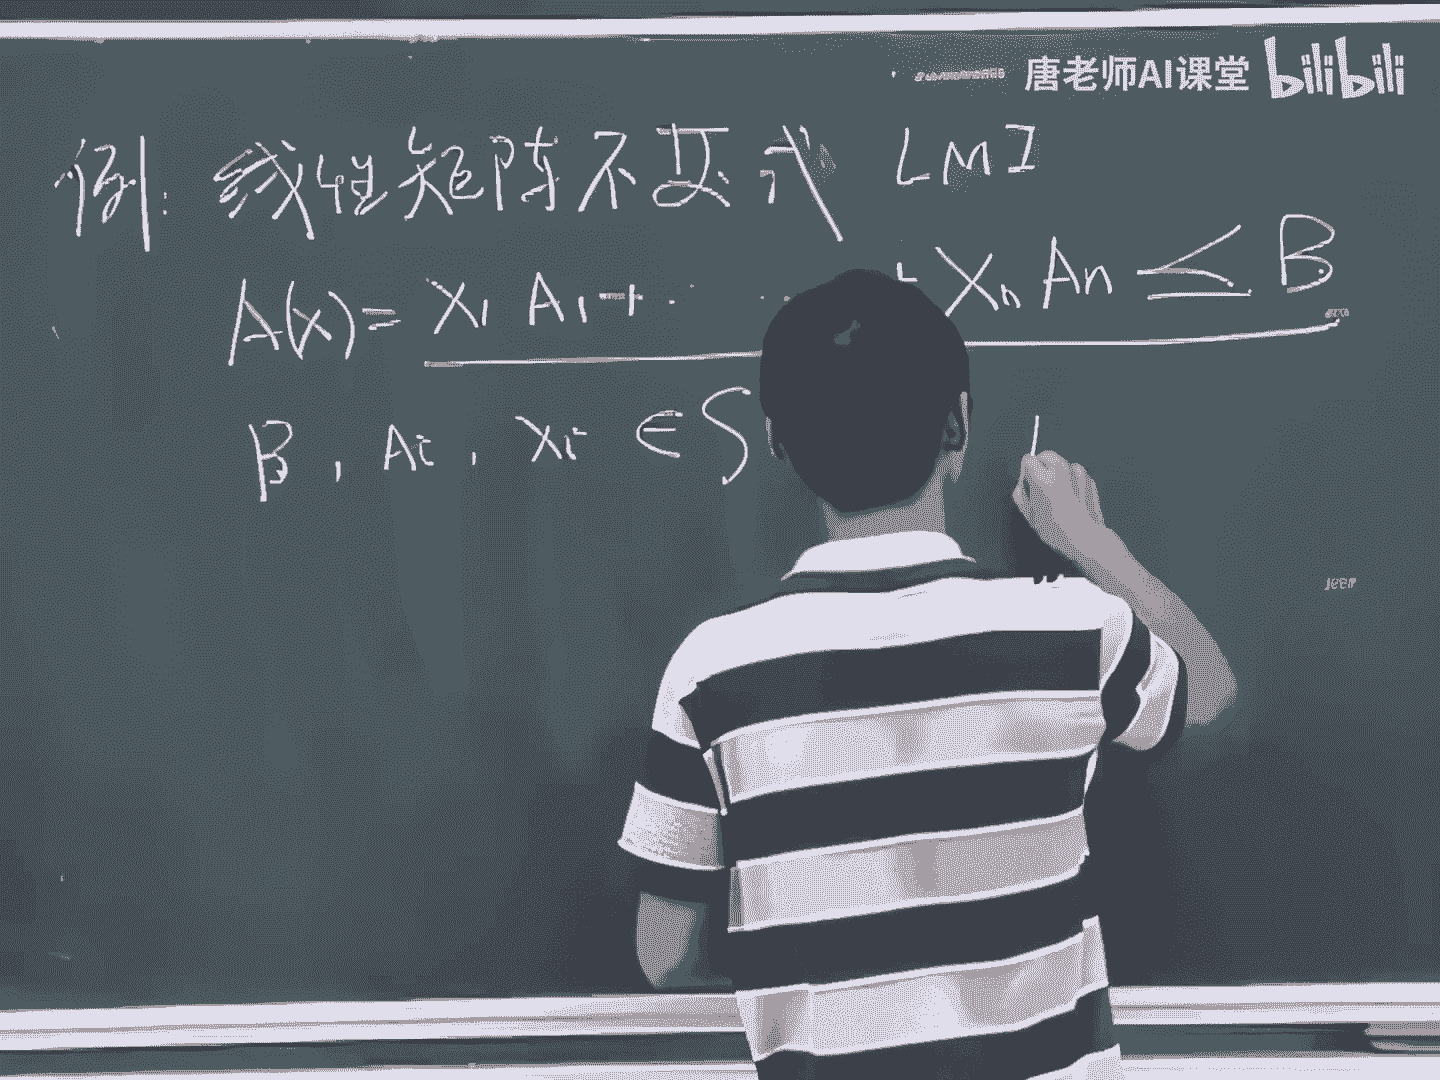 唐老师AI课堂 bilibili
例: 线性矩阵不变式 LMI
A(x)= X₁ A₁+ · · + Xₙ Aₙ ≤ B
B , Ai , Xi ∈ S
JEEP